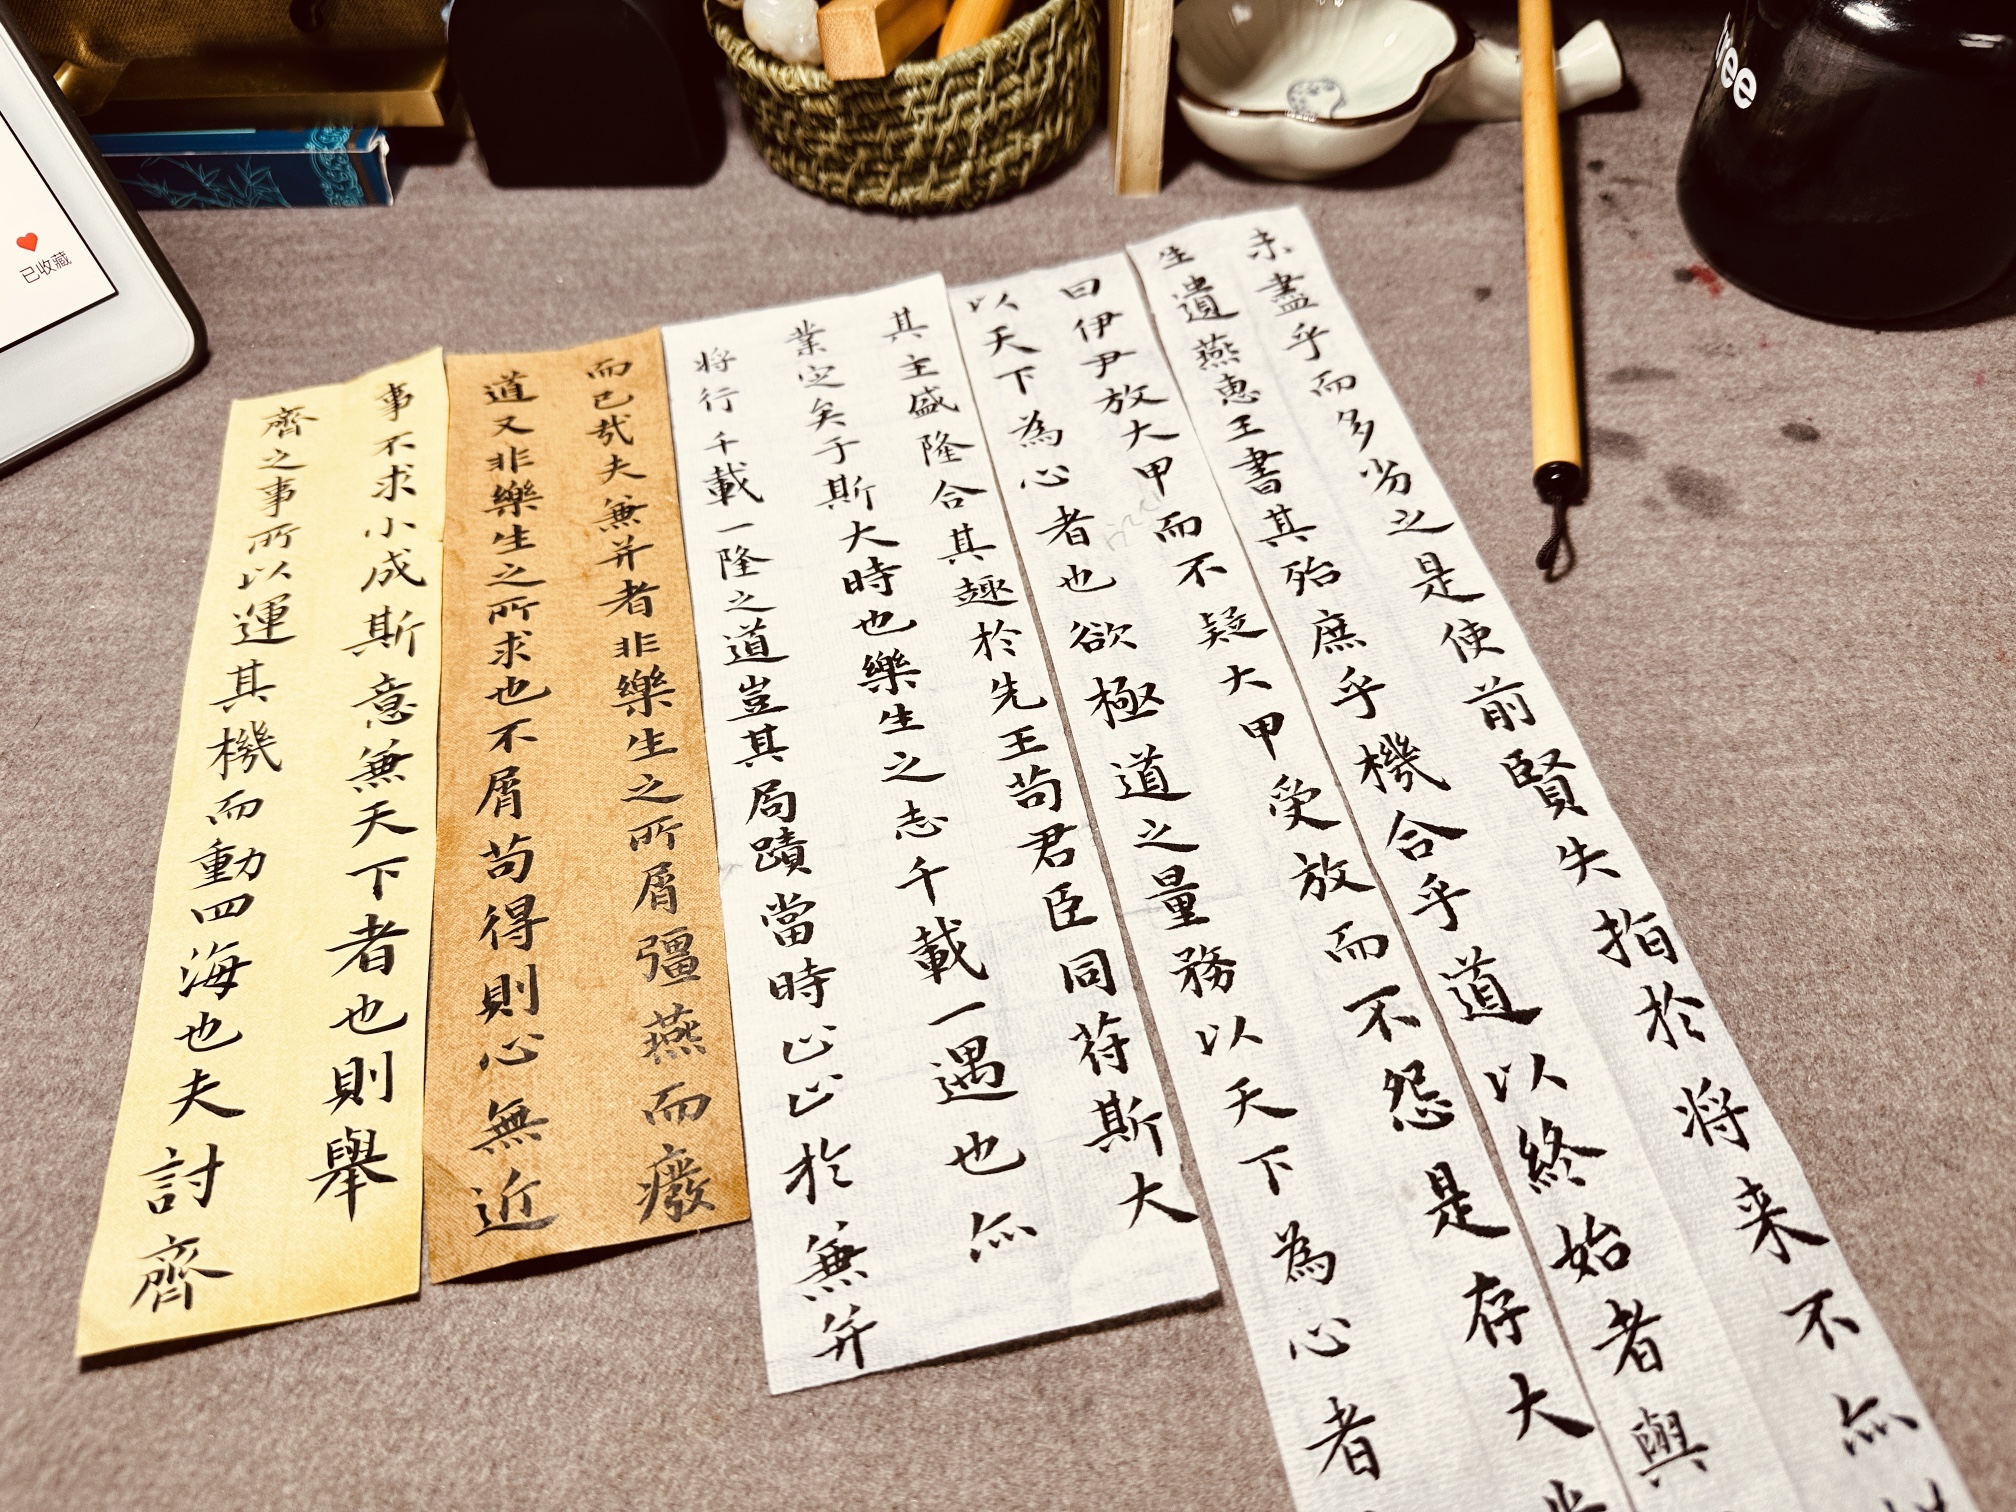 未盡乎而多劣之是使前賢失指於將来不亦
生遺燕惠王書其殆庶乎機合乎道以終始者與
曰伊尹放大甲而不疑大甲受放而不怨是存大
以天下為心者也欲極道之量務以天下為心者
其主盛隆合其趣於先王苟君臣同苻斯大
業定矣于斯大時也樂生之志千載一遇也亦
将行千載一隆之道豈其局蹟當時止止於無并
而已哉夫無并者非樂生之所屑彊燕而癈
道又非樂生之所求也不屑苟得則心無近
事不求小成斯意無天下者也則舉
齊之事所以運其機而動四海也夫討齊
已收藏